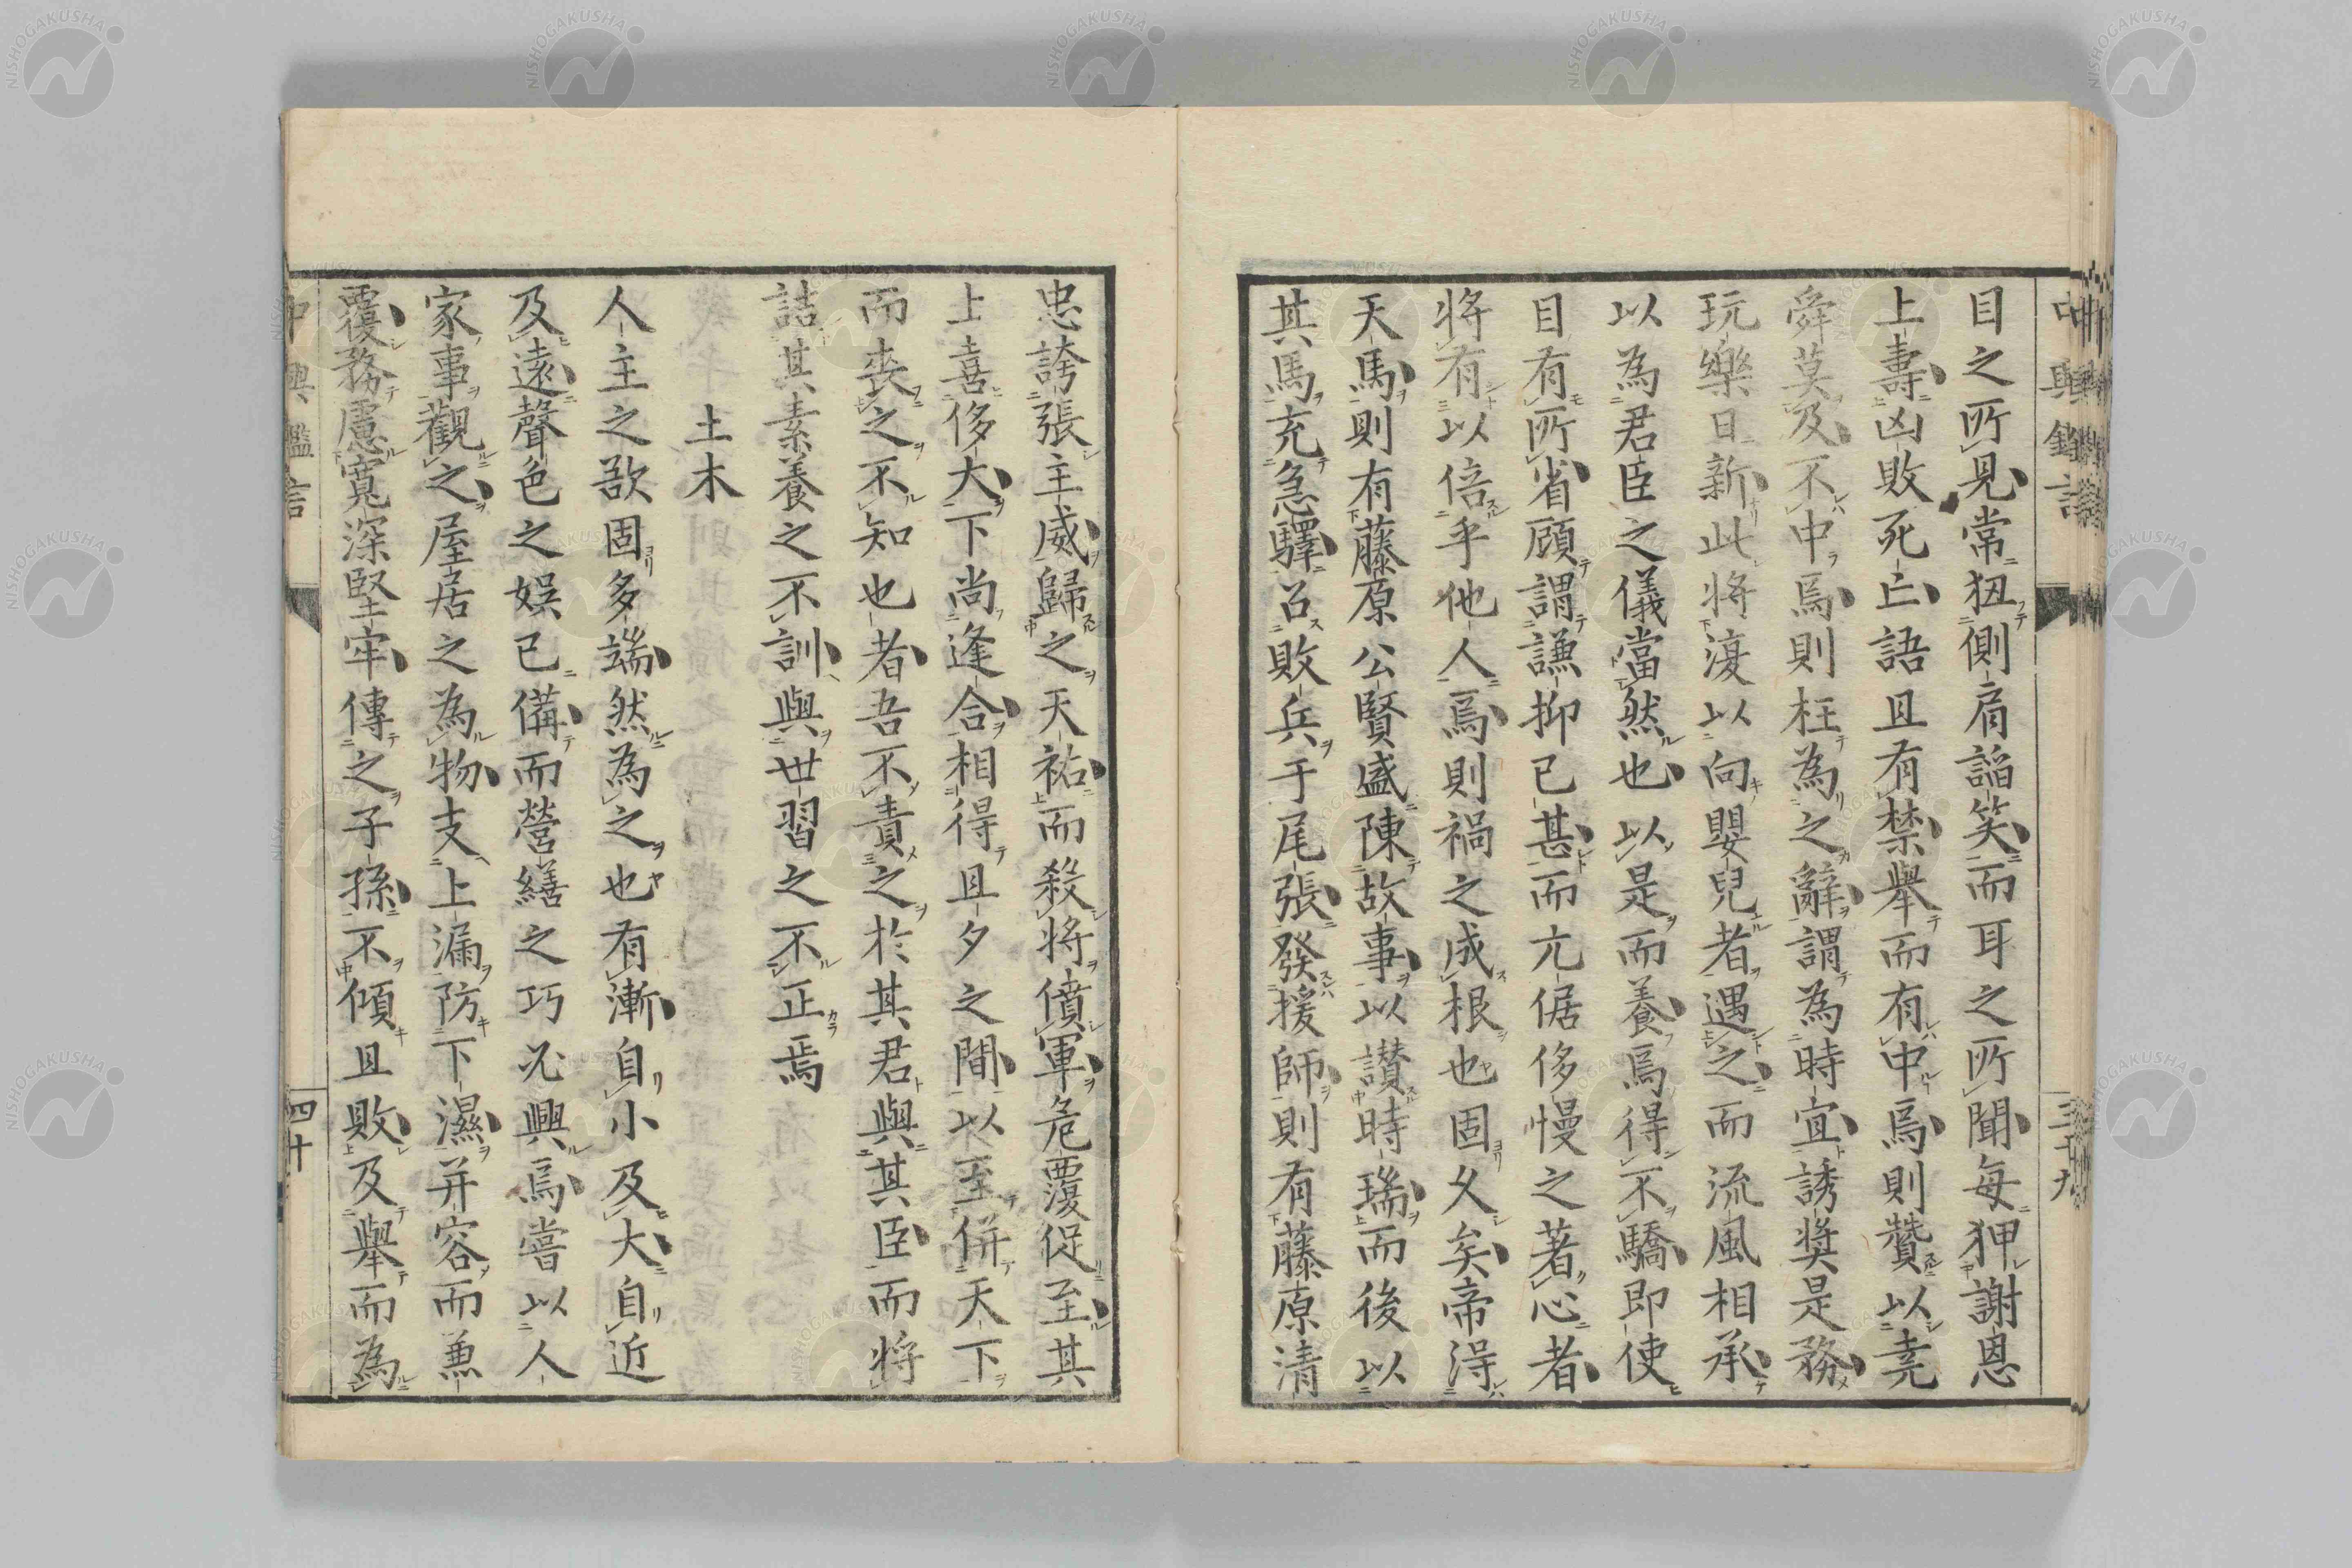 目之所見常狃側肩諂笑而耳之所聞每狎謝恩
上壽凶敗死亡語且有禁舉而有中焉則贊以堯
舜莫及不中焉則枉為之辭謂為時宜誘奬是務
玩樂日新此將溲以向嬰兒者遇之而流風相承
以為君臣之儀當然也以是而養焉得不驕即使
目有所省顧謂謙抑已甚而亢倨侈慢之著心者
將有以倍乎他人焉則禍之成根也固久矣帝得
天馬則有藤原公賢盛陳故事以讃時瑞而後以
其馬充急驛召敗兵于尾張發援師則有藤原清
忠誇張主威歸之天祐而殺將僨軍危覆促至其
上喜侈大下尚逢合相得且夕之間以至併天下
而喪之不知也者吾不責之於其君與其臣而將
詰其素養之不訓與世習之不正焉
土木
人主之欲固多端然為之也有漸自小及大自近
及遠聲色之娛已備而營繕之巧必興焉嘗以人
家事觀之屋居之為物支上漏防下濕并容而兼
覆務慮寬深堅牢傳之子孫不傾且敗及舉而為
中興鑑言
四十